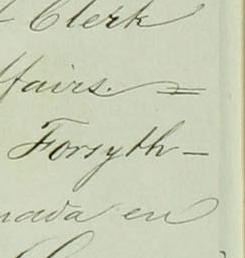 Clerk
ffairs. =
Forsyth -
nada en